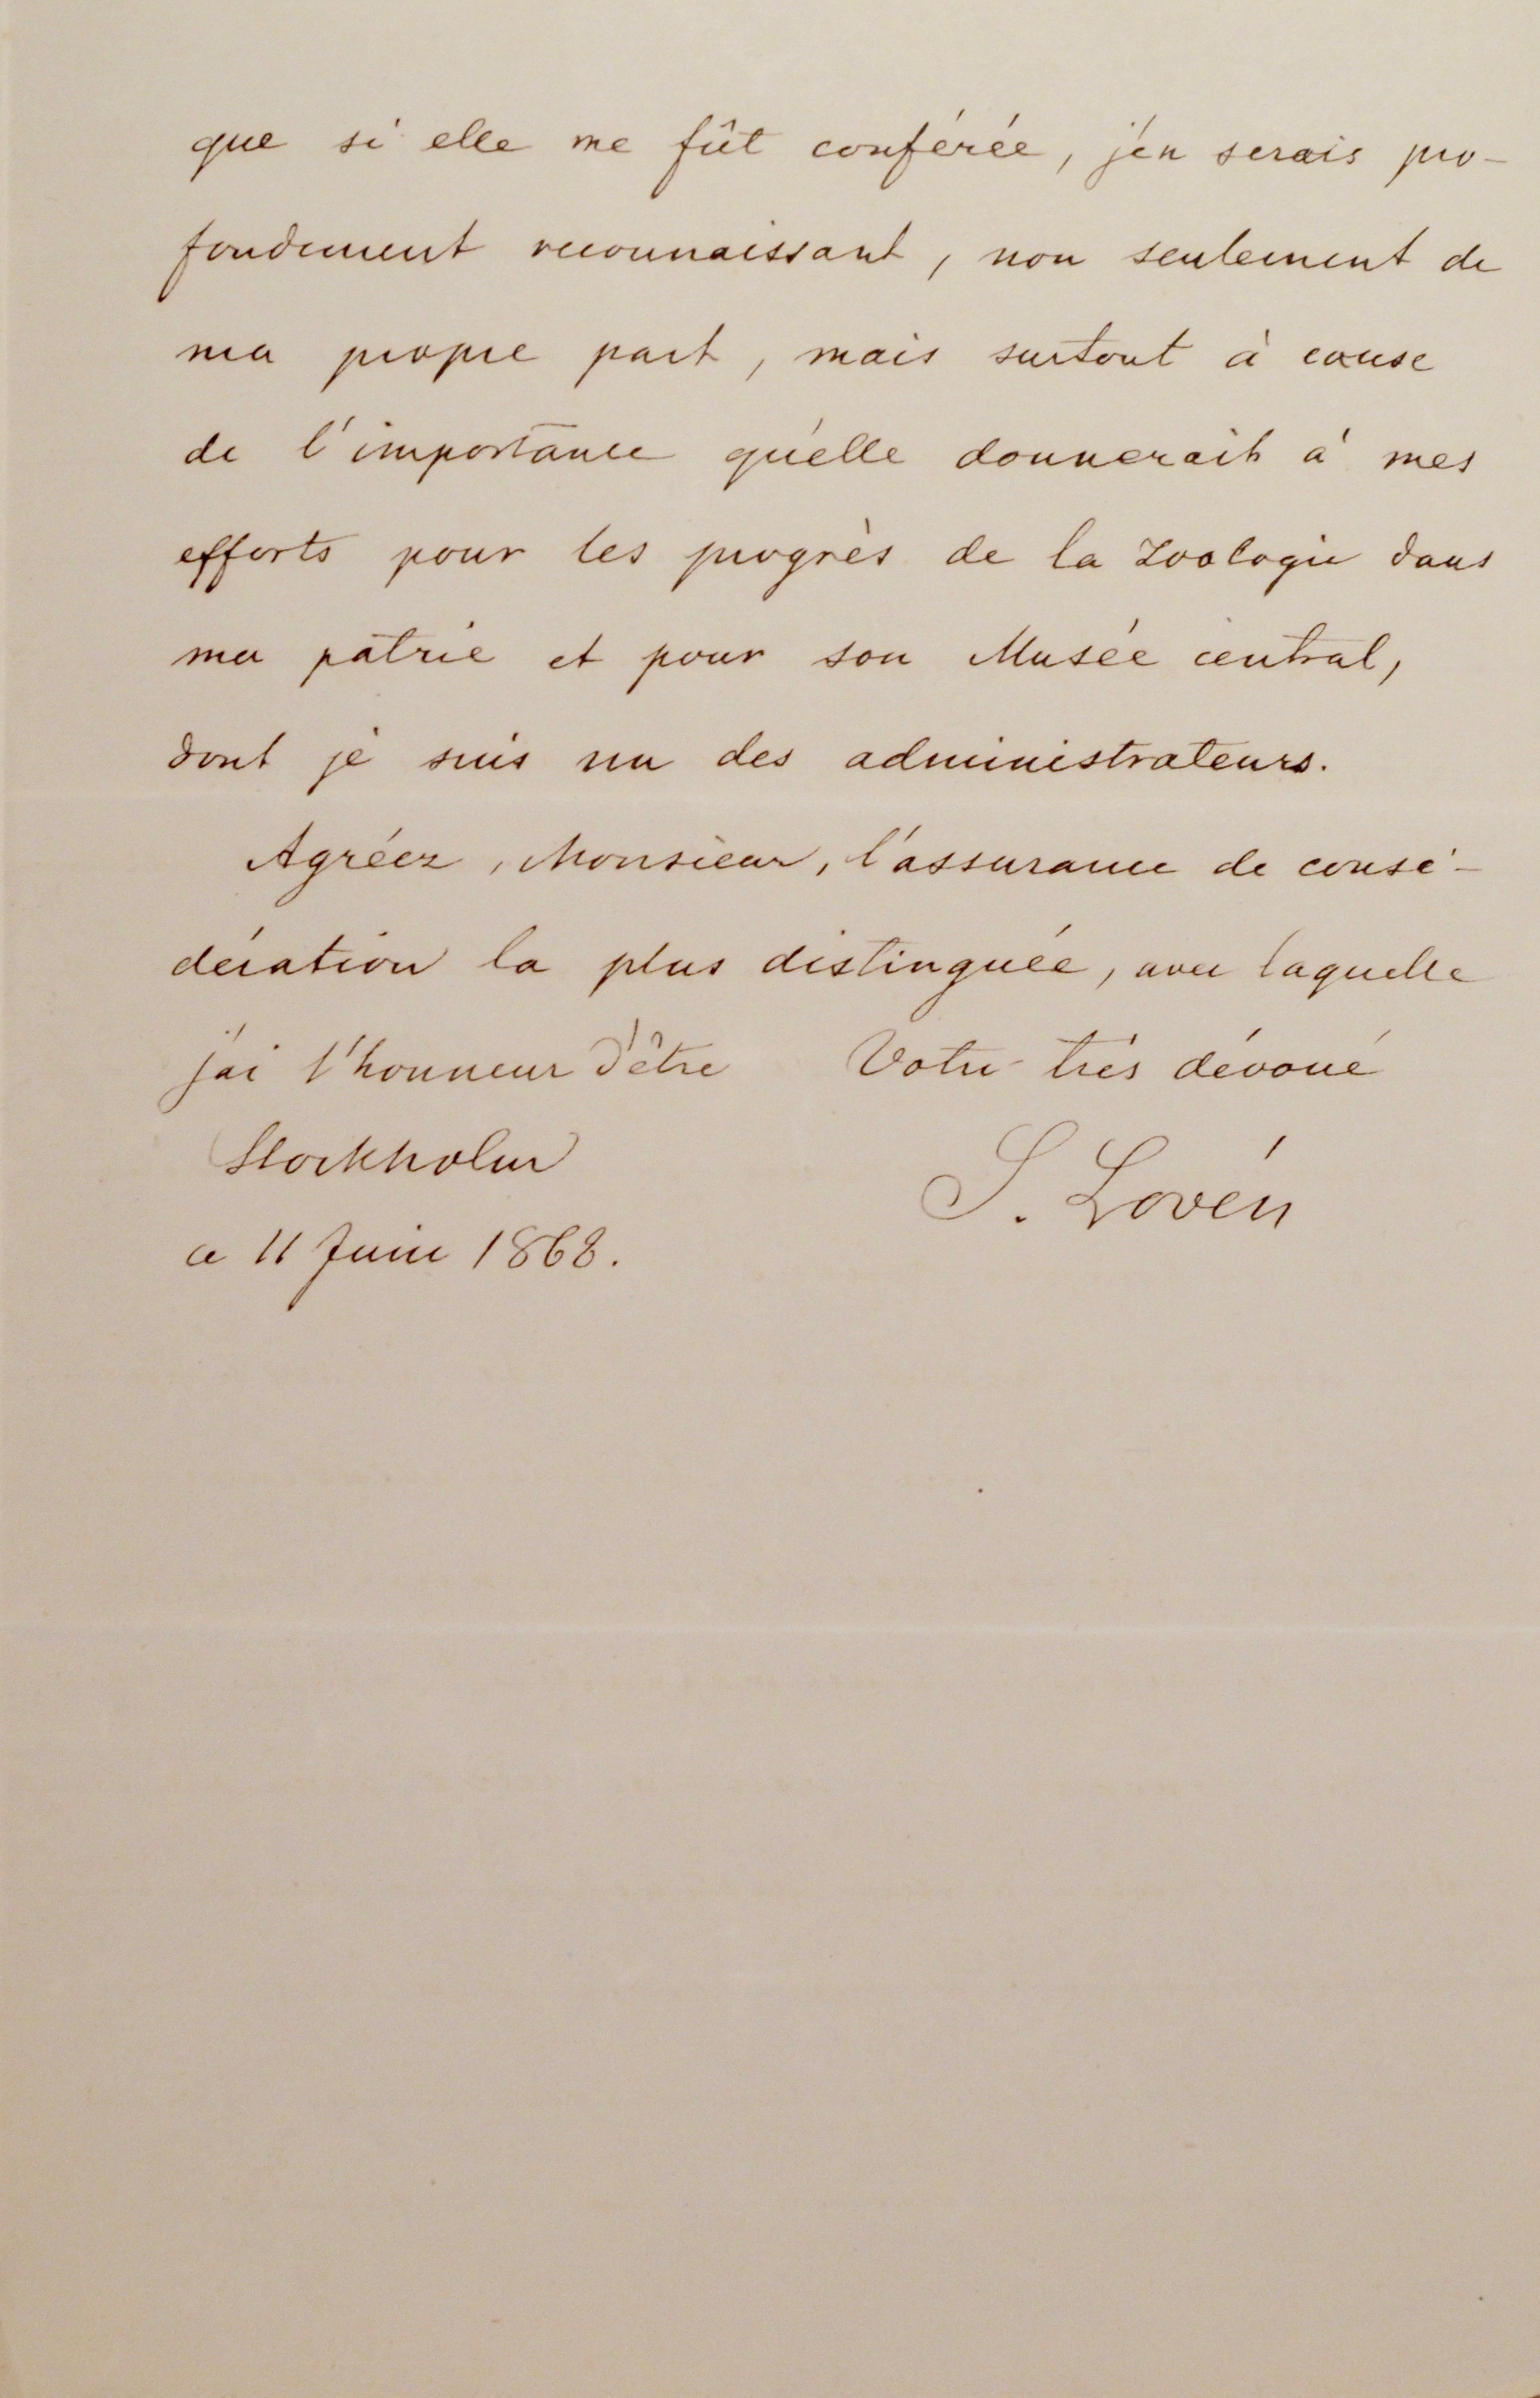 que si elle me fût conférée, j'en serais pro-
fondement reconnaissant, non seulement de
ma propre part, mais surtout à cause
de l'importance qu'elle donnerait à mes
efforts pour les progrès de la Zoologie dans
ma patrie et pour son Musée central,
dont je suis un des administrateurs.
Agréez, Monsieur, l'assurance de consi-
deration la plus distinguée, avec laquelle
j'ai l'honneur d'être Votre très dévoué
Stockholm S. Lovén
ce 11 Juin 1868.